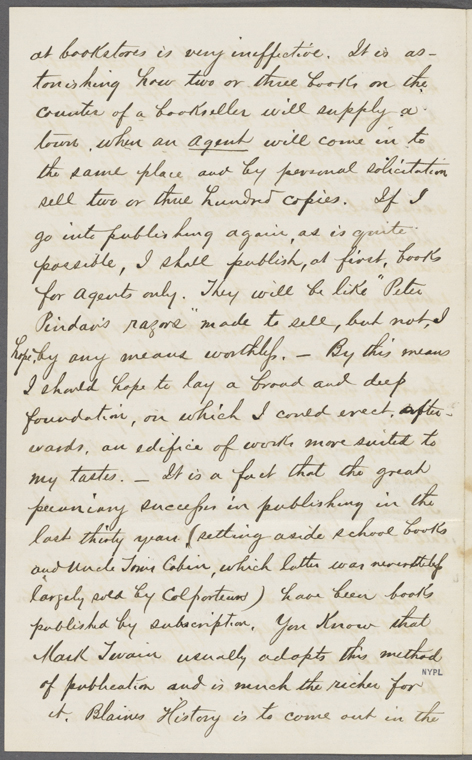 at bookstores is very ineffective. It is as-
tonishing how two or three books on the
counter of a bookseller will supply a
town, when an agent will come in to
the same place and by personal solicitation
sell two or three hundred copies. If I
go into publishing again, as is quite
possible, I shall publish, at first, books
for agents only. They will be like "Peter
Pindar's razors" made to sell, but not, I
hope, by any means worthless. — By this means
I should hope to lay a broad and deep
foundation, on which I could erect, after-
wards, an edifice of works more suited to
my tastes. — It is a fact that the great
pecuniary successes in publishing in the
last thirty years (setting aside school books
and Uncle Tom's Cabin, which latter was nevertheless
largely sold by Colporteurs) have been books
published by subscription. You know that
Mark Twain usually adopts this method
of publication and is much the richer for
it. Blaines History is to come out in the
NYPL